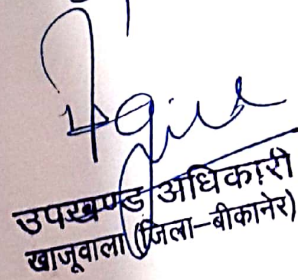 उपखण्ड अधिकारी
खाजूवाला (जिला-बीकानेर)